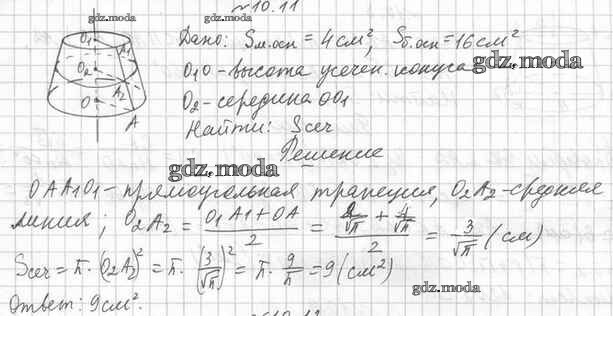 №10.11
gdz.moda
Дано: Sм.осн = 4 см², Sб.осн = 16 см²
O₁O - высота усечен. конуса gdz.moda
O₂ - середина OO₁
Найти: Sсеч
O₁ A₁
O₂ A₂
O A
Решение
gdz.moda
OAA₁O₁ - прямоугольная трапеция, O₂A₂ - средняя
линия; O₂A₂ = (O₁A₁ + OA)/2 = (2/√π + 4/√π)/2 = 3/√π (см)
Sсеч = π · (O₂A₂)² = π · (3/√π)² = π · 9/π = 9 (см²)
gdz.moda
Ответ: 9 см².